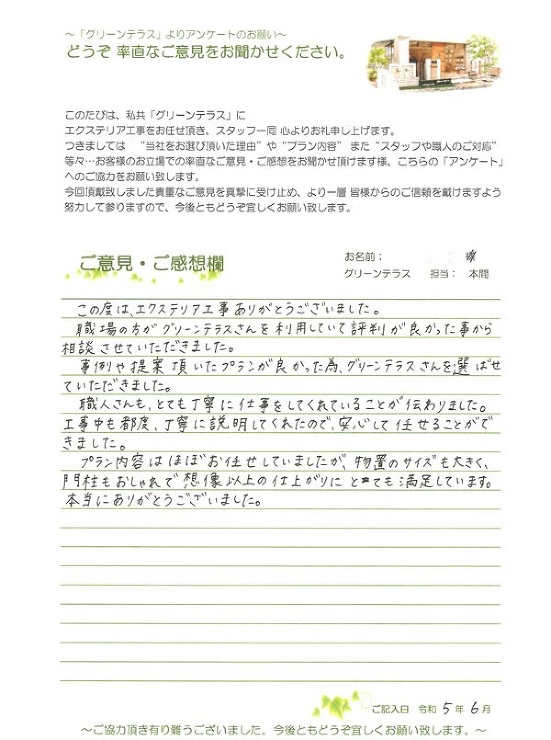 ～「グリーンテラス」よりアンケートのお願い～
どうぞ 率直なご意見をお聞かせください。
このたびは、私共「グリーンテラス」に
エクステリア工事をお任せ頂き、スタッフ一同 心よりお礼申し上げます。
つきましては “当社をお選び頂いた理由”や“プラン内容” また“スタッフや職人のご対応”
等々…お客様のお立場での率直なご意見・ご感想をお聞かせ頂けます様、こちらの「アンケート」
へのご協力をお願い致します。
今回頂戴致しました貴重なご意見を真摯に受け止め、より一層 皆様からのご信頼を戴けますよう
努力して参りますので、今後ともどうぞ宜しくお願い致します。
ご意見・ご感想欄
お名前： 様
グリーンテラス 担当： 本間
この度は、エクステリア工事ありがとうございました。
職場の方がグリーンテラスさんを利用していて評判が良かった事から
相談させていただきました。
事例や提案頂いたプランが良かった為、グリーンテラスさんを選ばせ
ていただきました。
職人さんも、とても丁寧に仕事をしてくれていることが伝わりました。
工事中も都度、丁寧に説明してくれたので、安心して任せることがで
きました。
プラン内容はほぼお任せしていましたが、物置のサイズも大きく、
門柱もおしゃれで想像以上の仕上がりにとても満足しています。
本当にありがとうございました。
ご記入日 令和 5 年 6 月
～ご協力頂き有り難うございました。今後ともどうぞ宜しくお願い致します。～